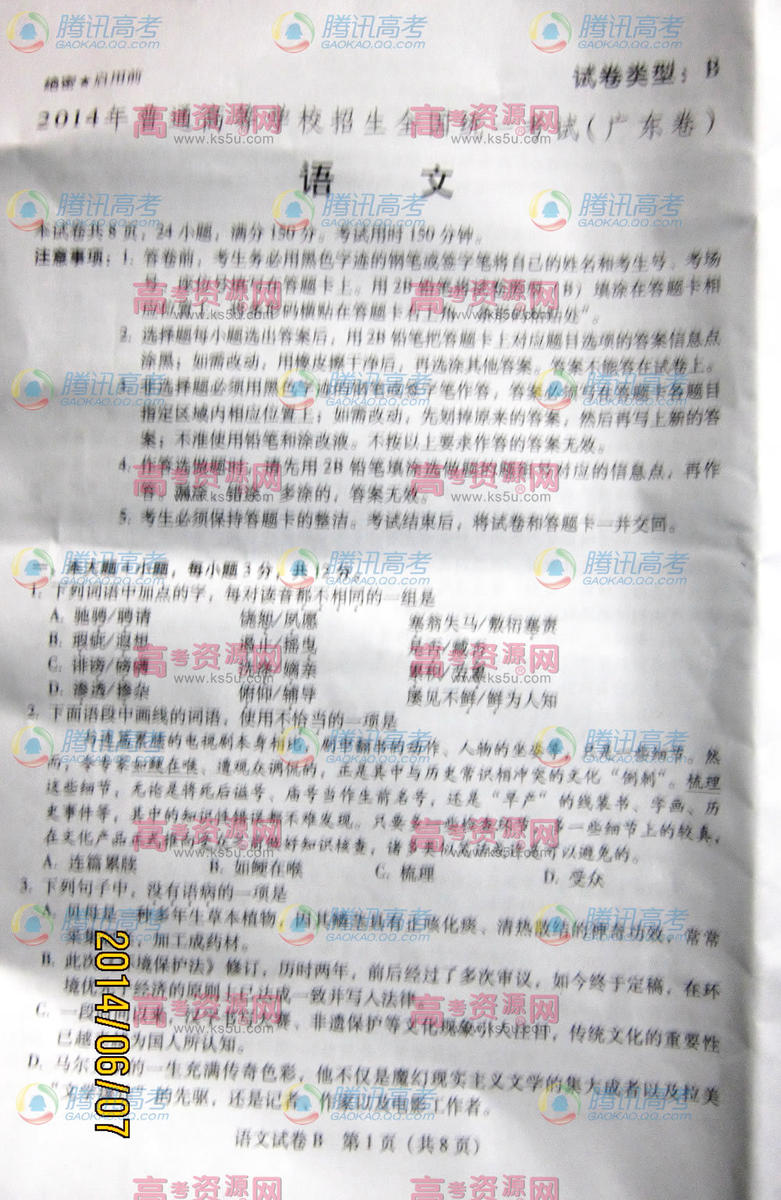 绝密★启用前
试卷类型：B
2014年普通高等学校招生全国统一考试（广东卷）
语 文
本试卷共8页，24小题，满分150分。考试用时150分钟。
注意事项：1. 答卷前，考生务必用黑色字迹的钢笔或签字笔将自己的姓名和考生号、考场
填写在答题卡上。用2B铅笔将试卷类型（B）填涂在答题卡相
条形码横贴在答题卡右上角“条形码粘贴处”。
2. 选择题每小题选出答案后，用2B铅笔把答题卡上对应题目选项的答案信息点
涂黑；如需改动，用橡皮擦干净后，再选涂其他答案。答案不能答在试卷上。
3. 非选择题必须用黑色字迹的钢笔或签字笔作答，答案必须写在答题卡各题目
指定区域内相应位置上；如需改动，先划掉原来的答案，然后再写上新的答
案；不准使用铅笔和涂改液。不按以上要求作答的答案无效。
4. 作答选做题时，请先用2B铅笔填涂选做题的题组号对应的信息点，再作
答。漏涂、错涂、多涂的，答案无效。
5. 考生必须保持答题卡的整洁。考试结束后，将试卷和答题卡一并交回。
一、本大题4小题，每小题3分，共12分。
1. 下列词语中加点的字，每对读音都不相同的一组是
A. 驰骋/聘请 饶恕/夙愿 塞翁失马/敷衍塞责
B. 瑕疵/遐想 摇曳
C. 诽谤/磅礴 洗涤/嫡亲
D. 渗透/掺杂 俯仰/辅导 屡见不鲜/鲜为人知
2. 下面语段中画线的词语，使用不恰当的一项是
与连篇累牍的电视剧本身相比，剧中翻书的动作、人物的坐姿等，只是一些细节。然
而，令专家如鲠在喉、遭观众调侃的，正是其中与历史常识相冲突的文化“倒刺”。梳理
这些细节，无论是将死后谥号、庙号当作生前名号，还是“早产”的线装书、字画、历
史事件等，其中的知识性错误都不难发现。只要多一些检查环节，多一些细节上的较真，
在文化产品 受众 做好知识核查，诸多类似 可以避免的。
A. 连篇累牍 B. 如鲠在喉 C. 梳理 D. 受众
3. 下列句子中，没有语病的一项是
A. 贝母是一种多年生草本植物，因其鳞茎具有止咳化痰、清热散结的神奇功效，常常
采集 加工成药材。
B. 此次《环境保护法》修订，历时两年，前后经过了多次审议，如今终于定稿，在环
境优先于经济的原则上已达成一致并写入法律。
C. 一段时间以来，汉字书写大赛、非遗保护等文化现象引人注目，传统文化的重要性
已越 为国人所认知。
D. 马尔 的一生充满传奇色彩，他不仅是魔幻现实主义文学的集大成者以及拉美
“文学爆炸”的先驱，还是记者、作家以及电影工作者。
语文试卷B 第1页（共8页）
2014/06/07
腾讯高考
GAOKAO.QQ.COM
高考资源网
www.ks5u.com